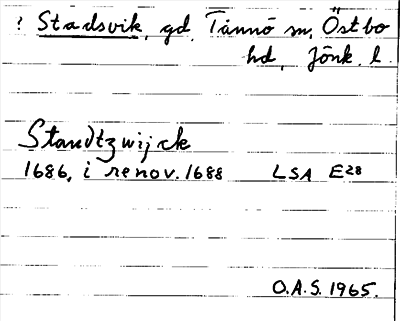 ? Stadsvik, gd, Tånnö sn, Östbo
hd, Jönk. l.
Standtzwijck
1686, i renov. 1688 LSA E28
O.A.S. 1965.